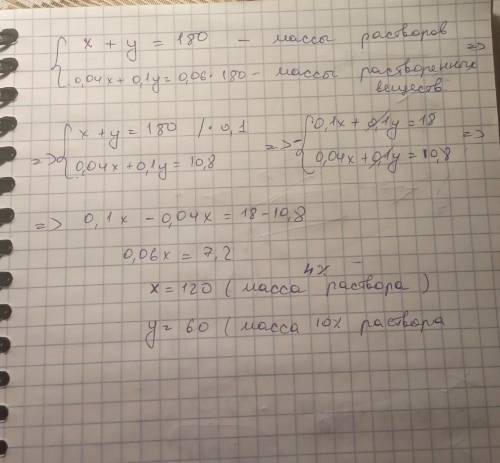 x + y = 180 – массы растворов
0,04x + 0,1y = 0,06 · 180 – массы растворенных =>
веществ
=> x + y = 180 / · 0,1 => – 0,1x + 0,1y = 18
0,04x + 0,1y = 10,8 0,04x + 0,1y = 10,8 =>
=> 0,1x – 0,04x = 18 – 10,8
0,06x = 7,2
4%
x = 120 ( масса раствора )
y = 60 ( масса 10% раствора